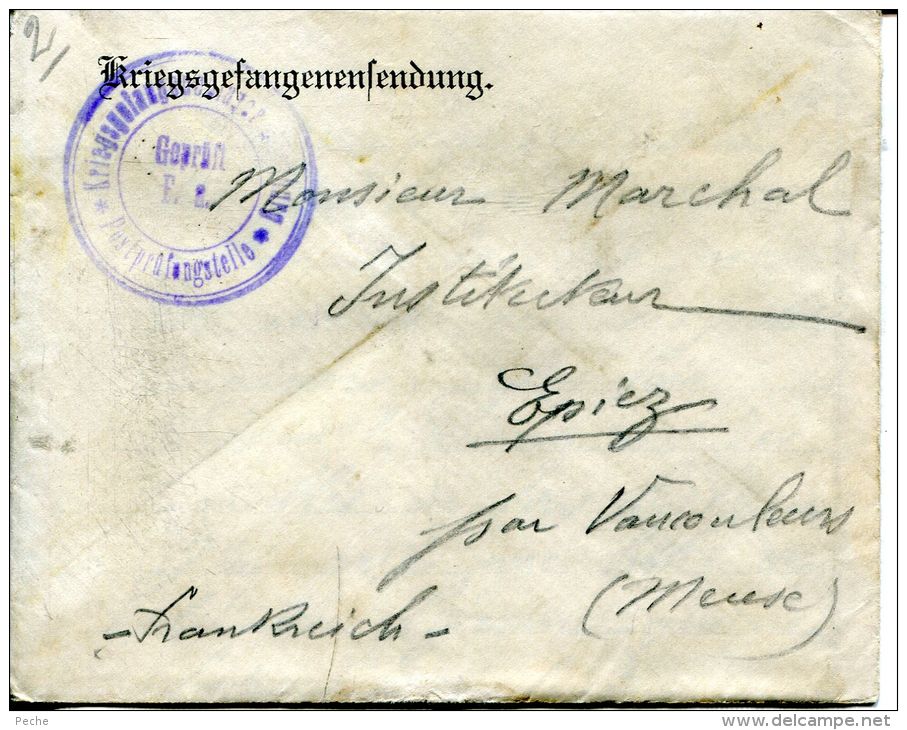 2/
Kriegsgefangenensendung.
Geprüft
F. a.
* Postprüfungstelle *
Monsieur Marchal
Instituteur
Epiez
par Vaucouleurs
(Meuse)
- Frankreich -
Peche
www.delcampe.net